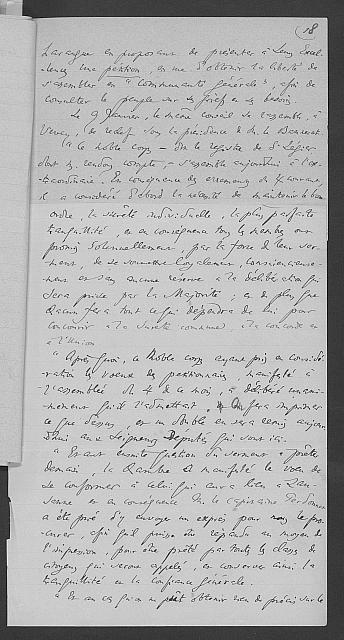 18
harangue en proposant de présenter à Leurs Excel-
lences une pétition, en vue d'obtenir la liberté de
s'assembler en "Communauté générale", afin de
consulter le peuple sur ses griefs et ses besoins.
Le 9 Janvier, le même conseil se rassemble, à
Vevey, de relief sous la présidence de M. de
"Le noble corps – dit le registre de St Légier
dont rendons compte, – s'assemble aujourd'hui à l'ex-
traordinaire. En conséquence des du 4 courant
il a considéré d'abord la nécessité de maintenir le bon
ordre, la sûreté individuelle, la plus parfaite
tranquillité, et en conséquence tous les membres ont
promis solennellement, par la force de leur ser-
ment, de se soumettre loyalement, consciencieuse-
ment et sans aucune réserve à la délibération qui
sera prise par la Majorité; et de plus que
chacun fera tout ce qui dépendra de lui pour
concourir à la sûreté commune, à la concorde et
à l'Union
"Après quoi, ce Noble corps ayant pris en considé-
ration le voeux des pétitionnaires manifesté à
l'assemblée du 4 de ce mois, a délibéré unani-
mement qu'il l'admettait. On fera imprimer
ce que dessus, et un double en sera remis aujour-
d'hui aux Seigneurs Députés qui sont ici.
"Etant ensuite question du serment à prêter
demain, la Chambre a manifesté le voeu de
se conformer à celui qui aura lieu à Lau-
sanne et en conséquence M. le capitaine Perdonnet
a été prié d'y envoyer un exprès pour nous le pro-
curer, afin qu'il puisse être répandu au moyen de
l'impression, pour être prêté par toutes les classes de
citoyens qui seront appelés, et conserver ainsi la
tranquillité et la confiance générale.
"Et au cas qu'on ne pût obtenir rien de précis sur le